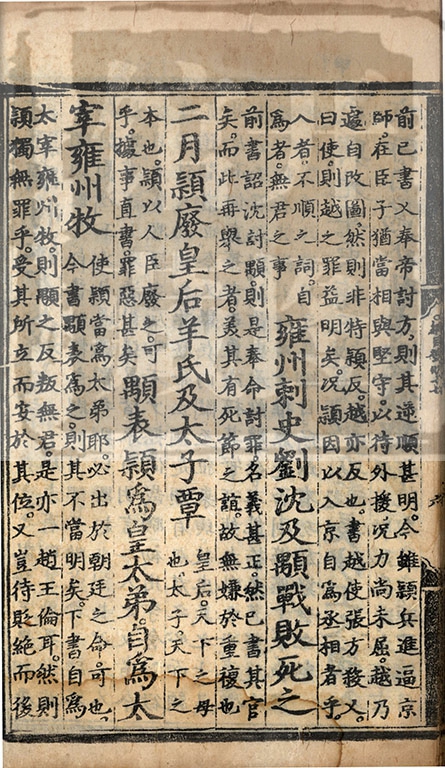 前已書乂奉帝討方則其逆順甚明今雖穎兵進逼京
師在臣子猶當相與堅守以待外援況力尚未屈越乃
遽自改圖然則非特穎反越亦反也書越使張方殺乂
曰使則越之罪益明矣況穎因以入京自為丞相者乎
人者不順之詞自
為者無君之事
雍州刺史劉沈及顒戰敗死之
前書詔沈討顒則是奉命討罪名義甚正然已書其官
矣而此再舉之者美其有死節之誼故無嫌於重複也
二月穎廢皇后羊氏及太子覃
皇后天下之母
也太子天下之
本也穎以人臣廢之可
乎據事直書罪惡甚矣
顒表穎為皇太弟自為太
宰雍州牧
使穎當為太弟耶必出於朝廷之命可也
今書顒表為之則其不當明矣下書自為
太宰雍州牧則顒之反叛無君是亦一趙王倫耳然則
穎獨無罪乎受其所立而安於其位又豈待敗絕而後